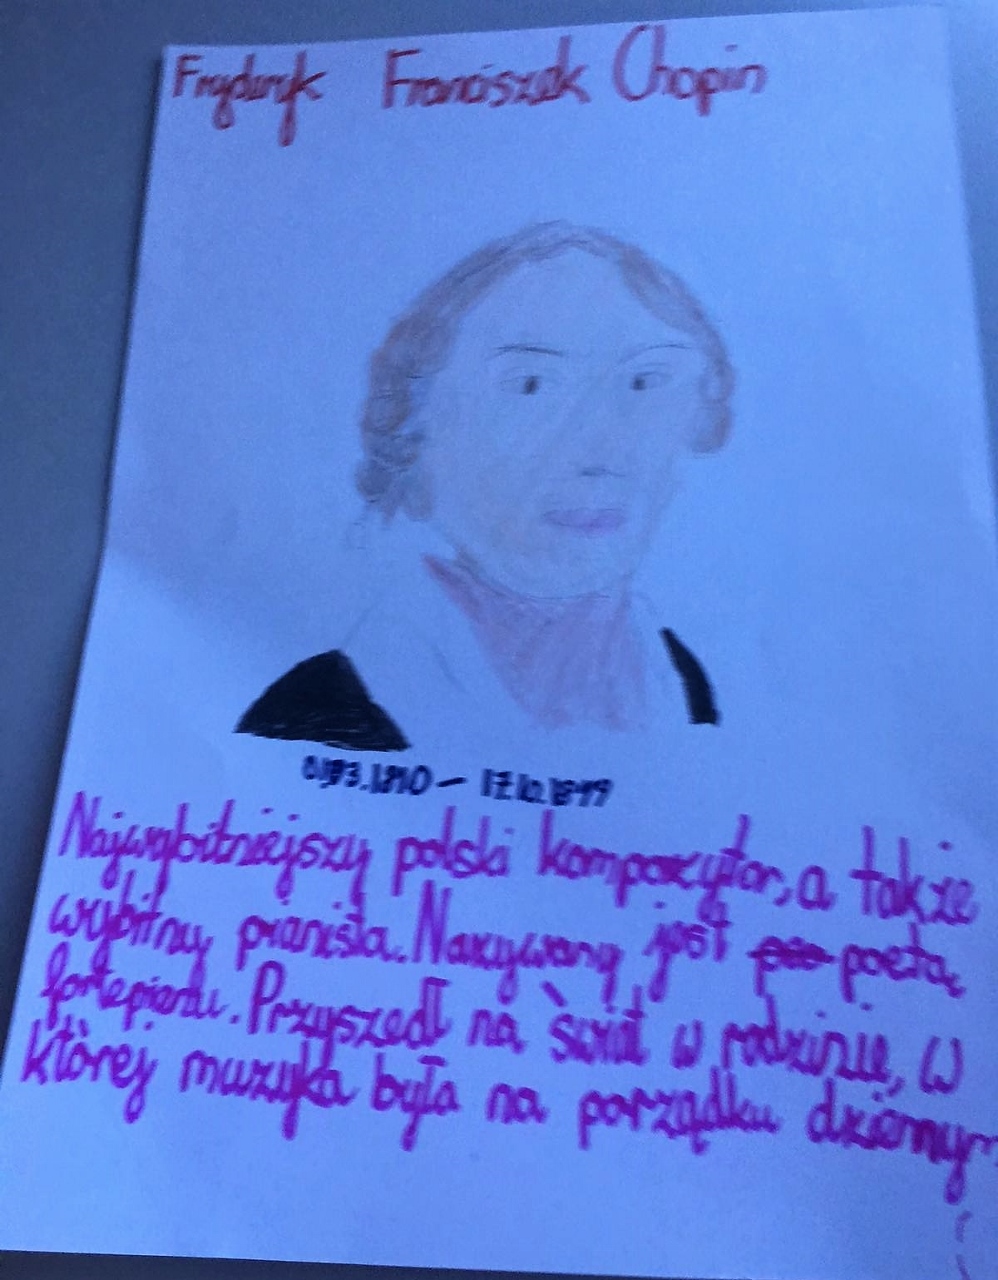 Fryderyk Franciszek Chopin
01.03.1810 - 17.10.1849
Najwybitniejszy polski kompozytor, a także
wybitny pianista. Nazywany jest poetą
fortepianu. Przyszedł na świat w rodzinie, w
której muzyka była na porządku dziennym